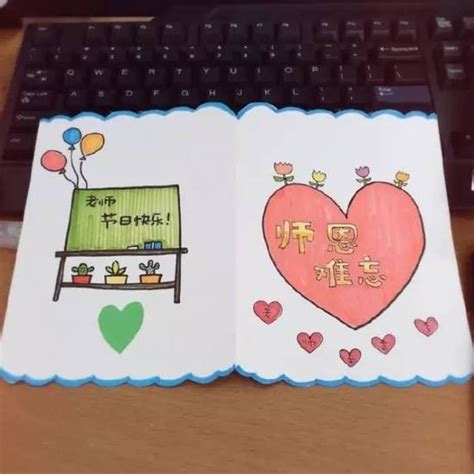 Backspace
Q W E R T Y U I O P
A S D F G H J K L
老师
节日快乐!
师恩
难忘
师